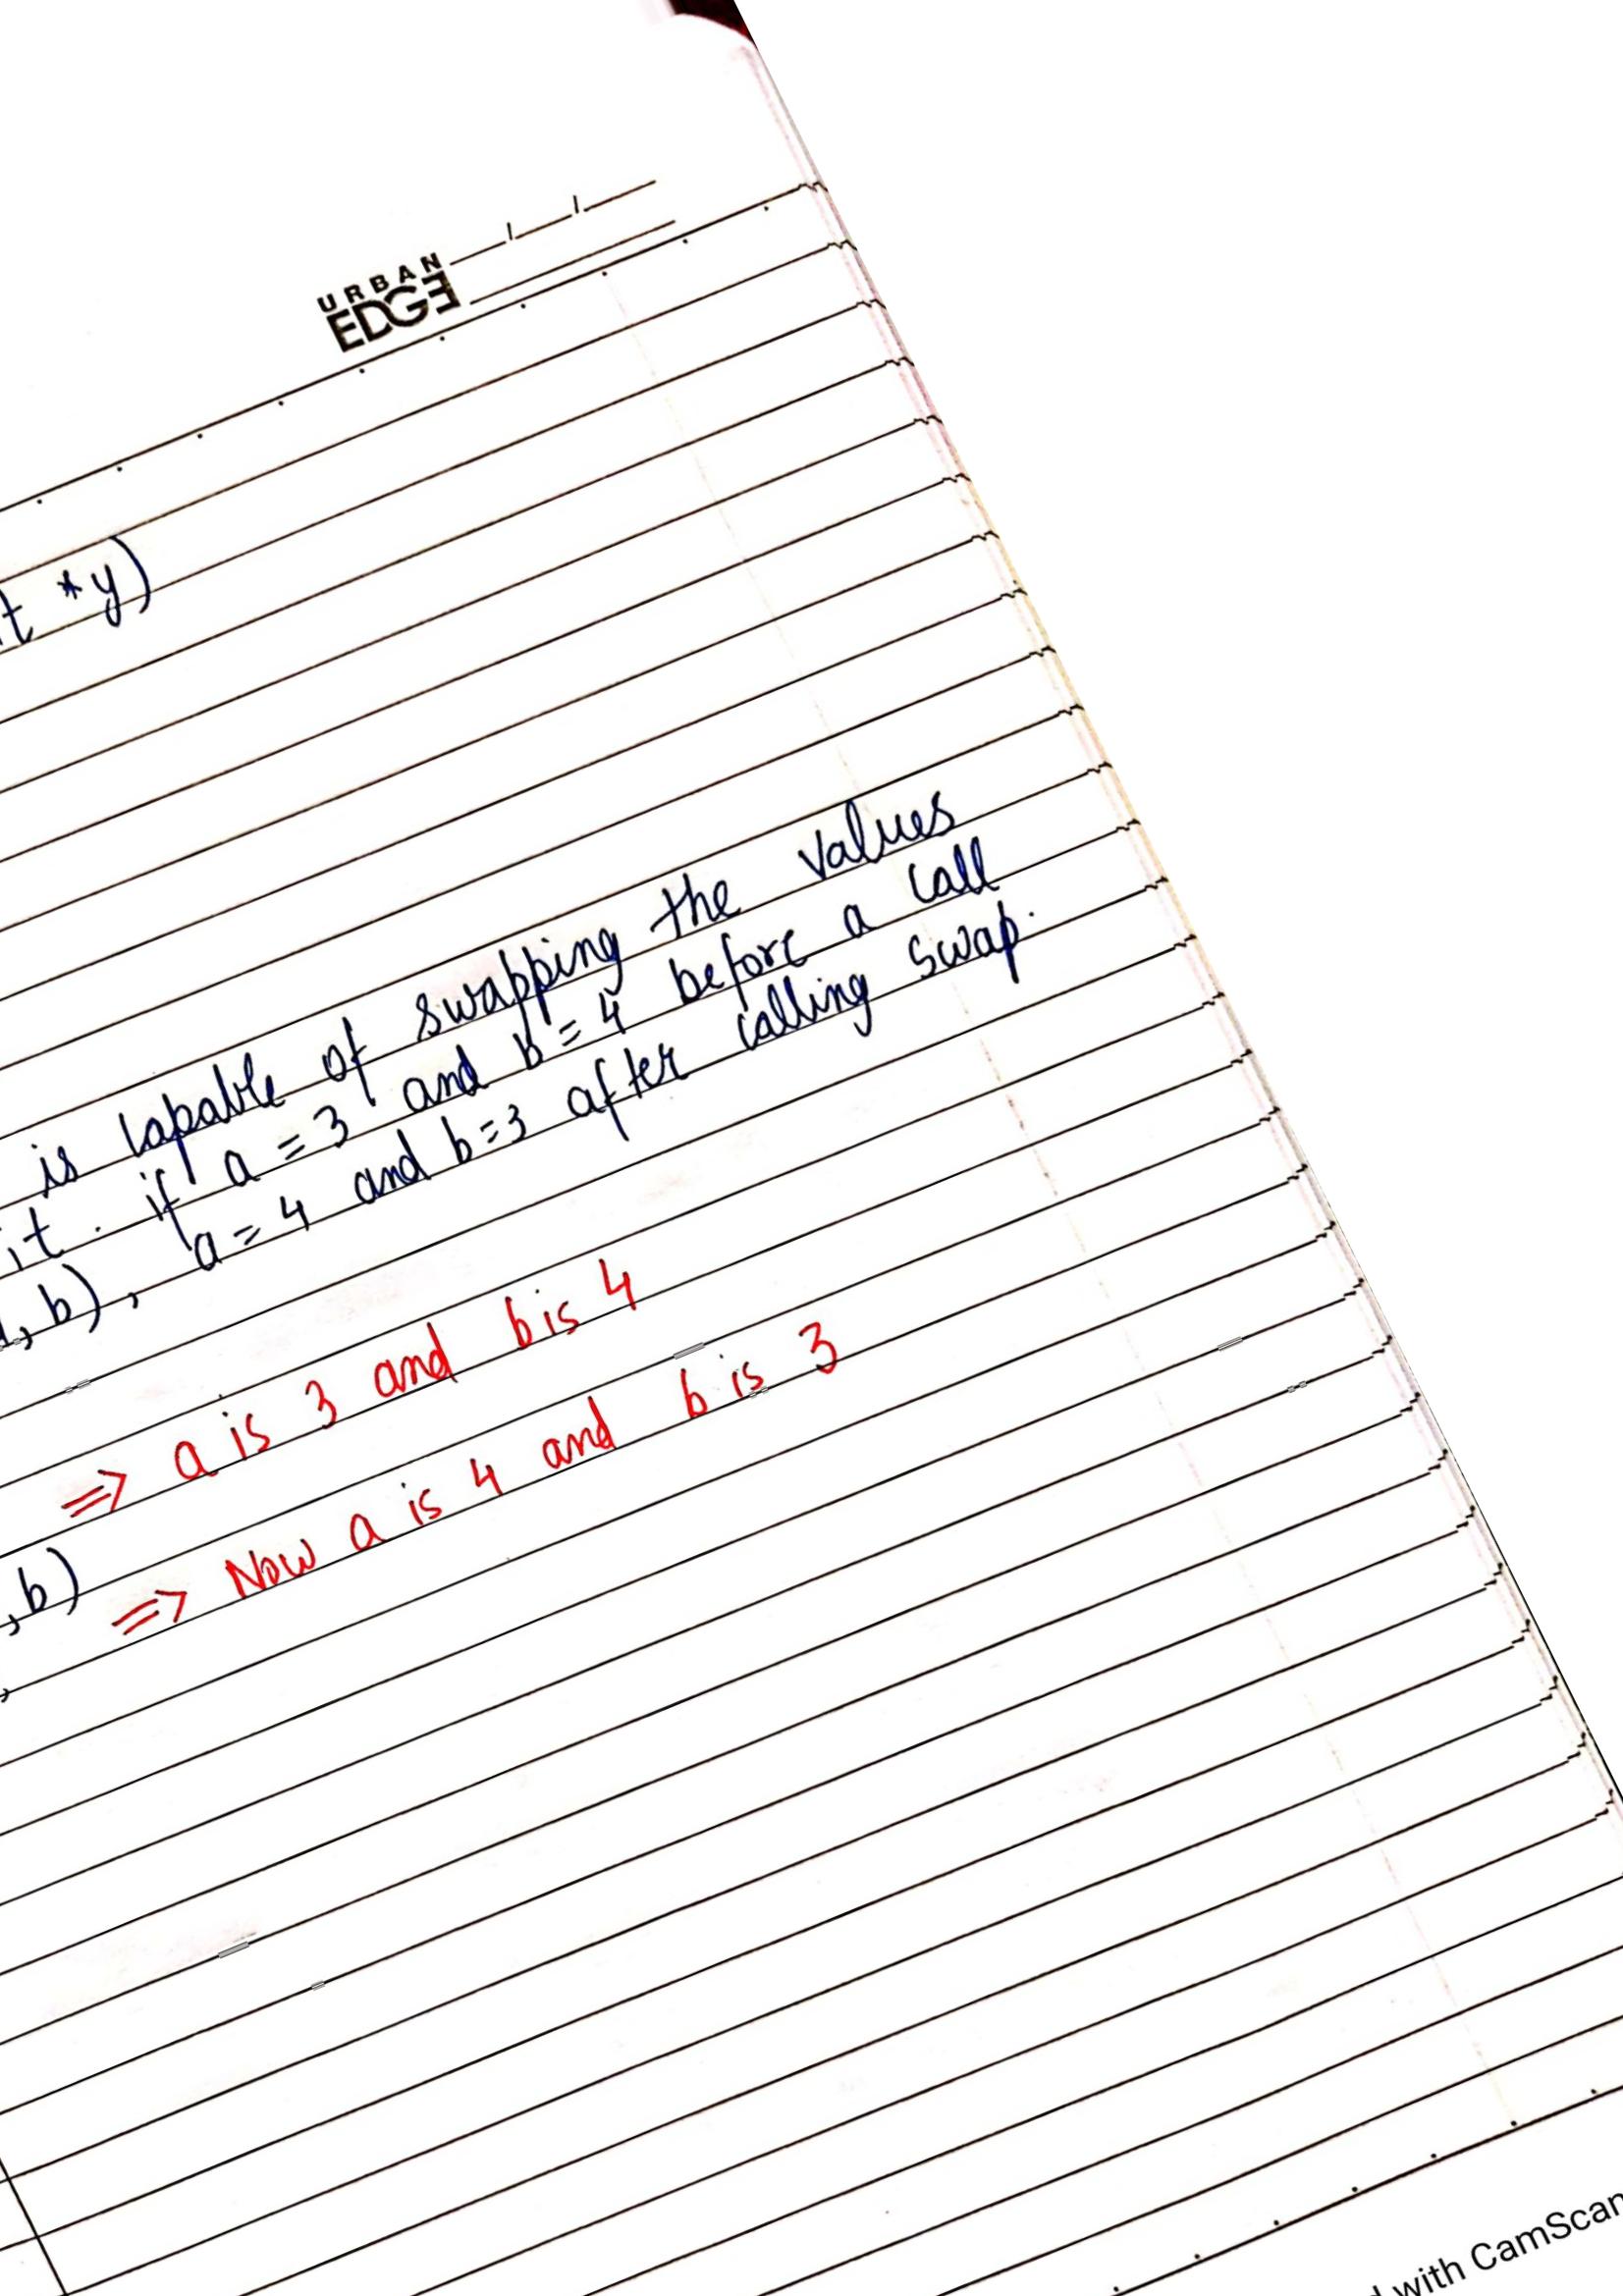 URBAN
EDGE
t *y)
is capable of swapping the values
it. if a = 3 and b = 4 before a call
, b), a = 4 and b = 3 after calling swap.
⇒ a is 3 and b is 4
,b)
⇒ Now a is 4 and b is 3
with CamScan